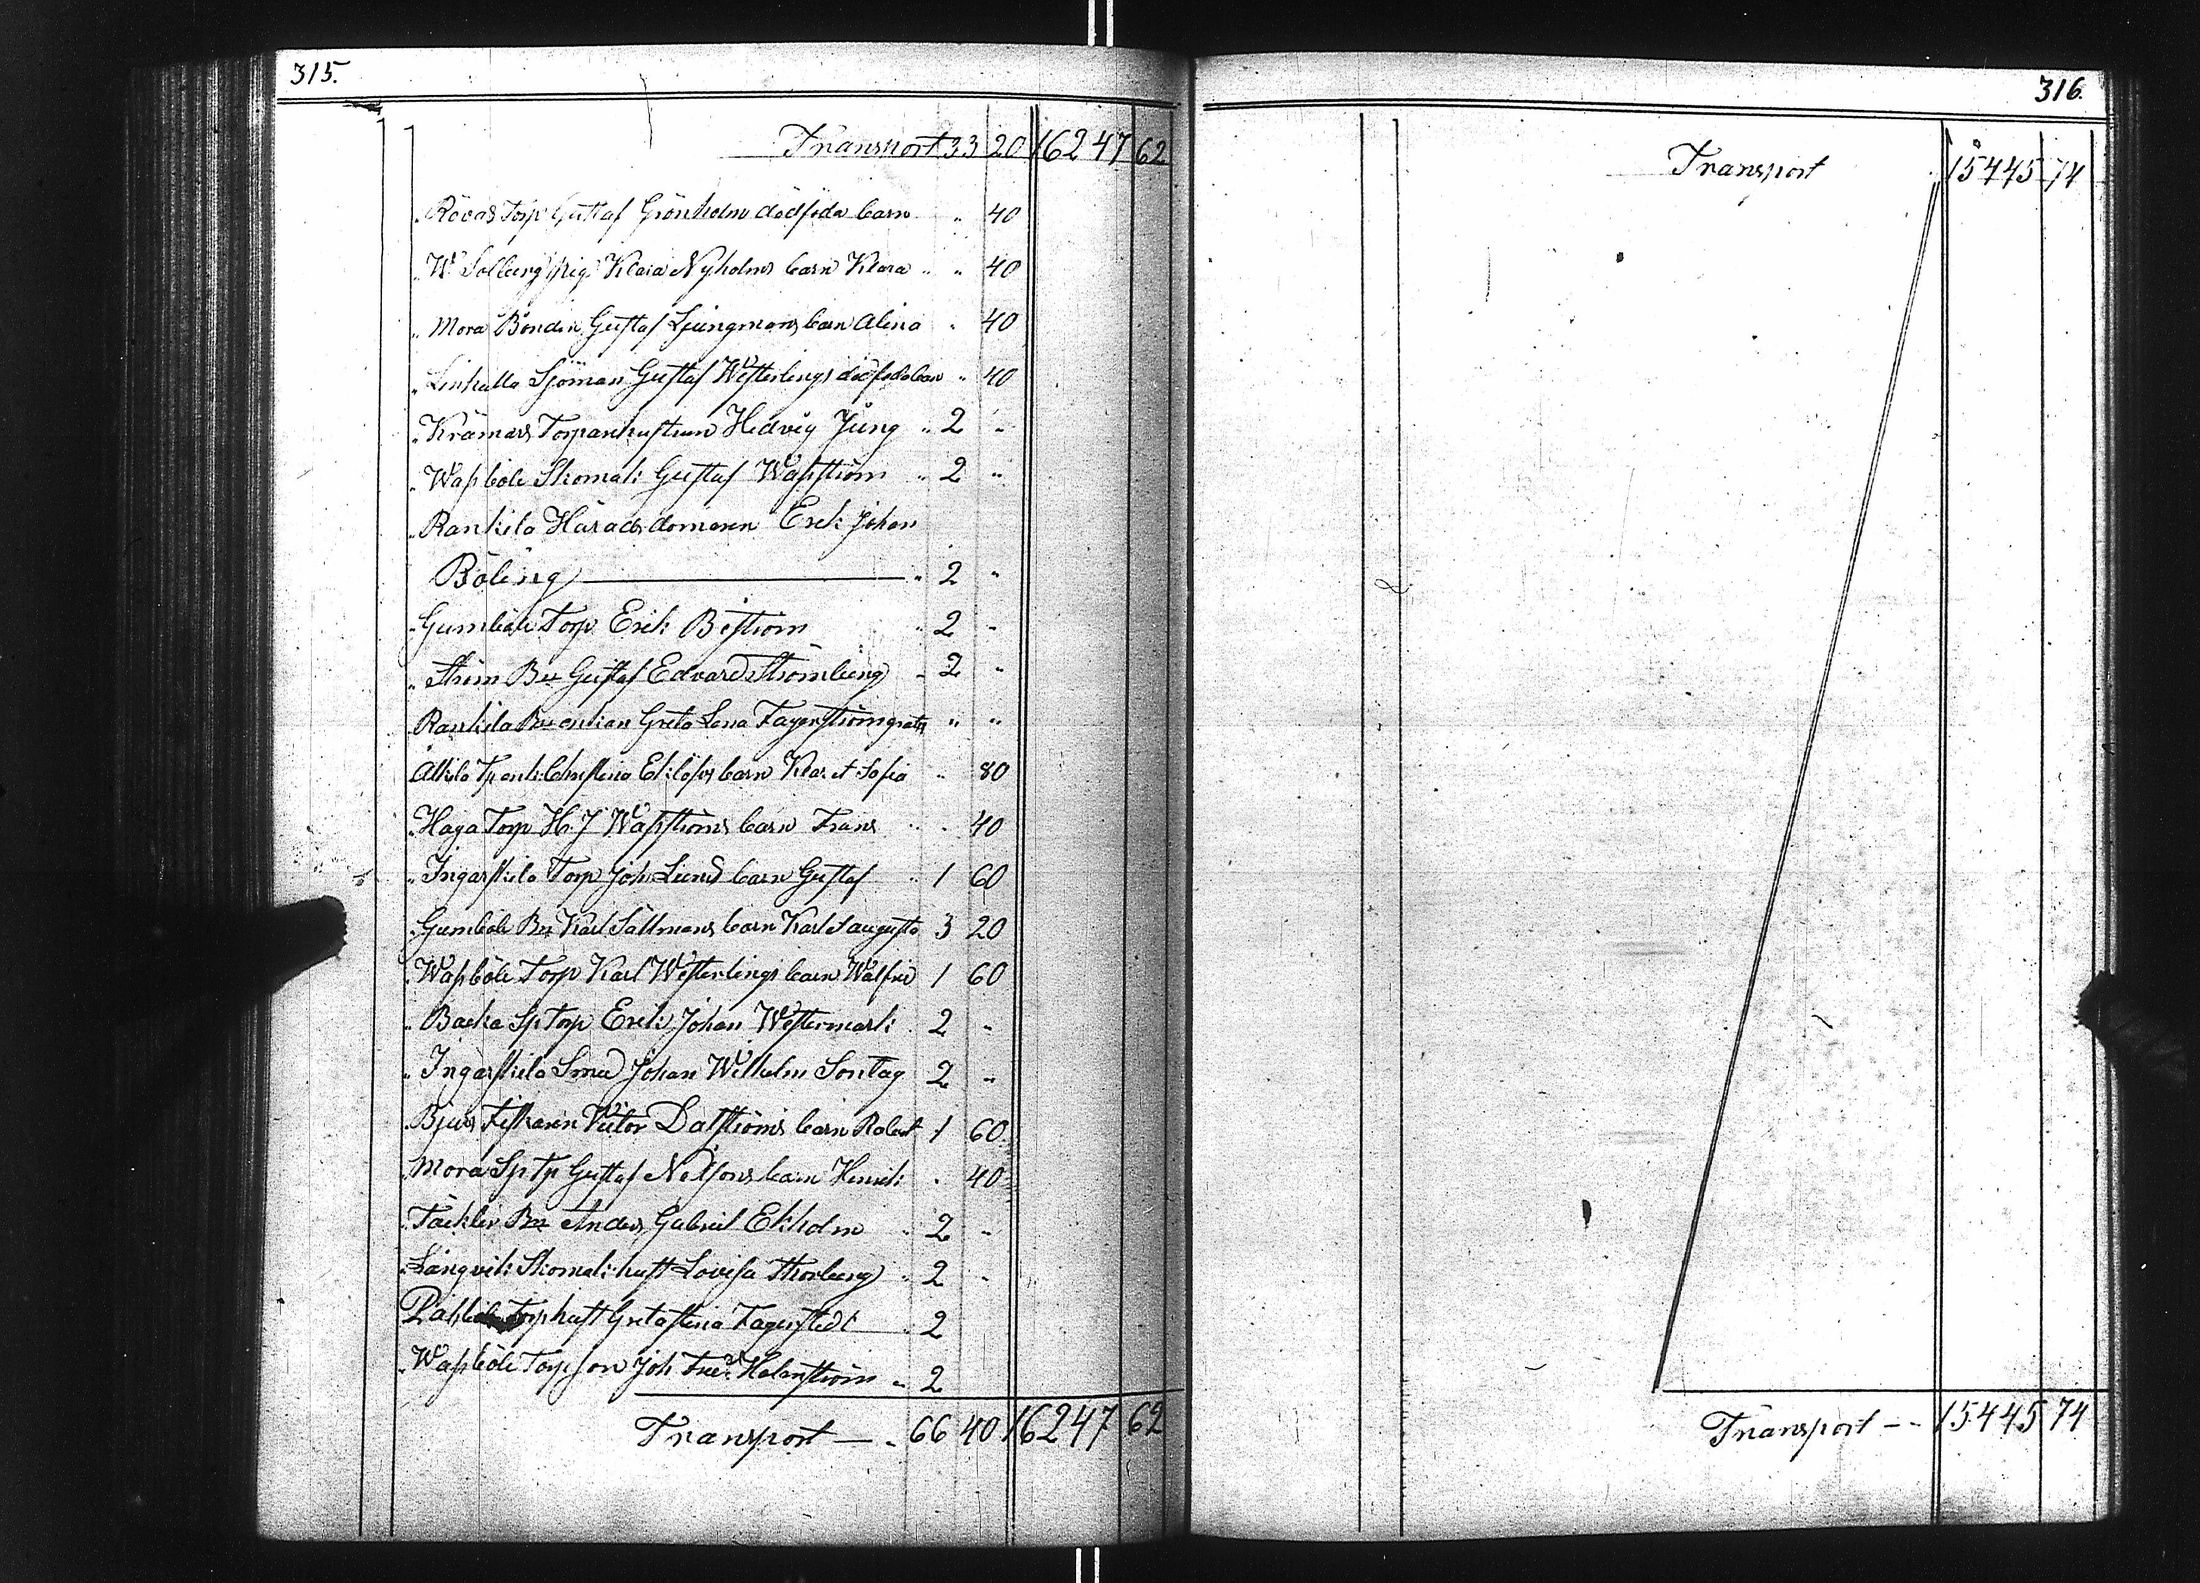 315.
Transport 33 20 16247 62
„ Rövas Torp Gustaf Grönholm dödföda barn „ 40
„ W Solberg pig Klara Nyholms barn Klara „ „ 40
„ Mora Bonden Gustaf Ljungmans barn Alina „ 40
„ Linkulla Sjöman Gustaf Westerlings dödföda barn „ 40
„ Krämars Torparehustrun Hedvig Jung „ 2 „
„ Wassböle Skomak: Gustaf Wasström „ 2 „
„ Rankila Häradsdomaren Erik Johan
Böling — „ 2 „
„ Gumböle Torp Erik Byström „ 2 „
„ Ström Bn Gustaf Edvard Strömberg „ 2 „
„ Rankila Bn enkan Greta Lena Fagerström gratis „ „
Christina Eklöfs barn Klar et Sofia „ 80
„ Haga Torp H. J Wasströms barn Frans „ „ 40
„ Ingarskila Torp Joh Lund barn Gustaf „ 1 60
„ Gumböle Bn Karl Sällmans barn Karl et augusta 3 20
„ Wassböle Torp Karl Westerlings barn Walfrid 1 60
„ Backa Sp Torp Erik Johan Westermark „ 2 „
„ Ingarskila Smed Johan Wilhelm Sontag 2 „
„ Bjurs Fiskaren Victor Dalströms barn Robert 1 60
„ Mora Sp Tp Gustaf Nelsons barn Henrik „ 40
„ Täckter Bn Anders Gabriel Ekholm „ 2 „
„ Långvik Skomak: hust Lovisa Thorberg „ 2 „
Torp hust Greta Stina Fagerstedt „ 2
„ Wassböle Torp son Joh Fred: Holmström „ 2
Transport — „ 66 40 16247 62
316.
Transport 15445 74
Transport - - 15445 74